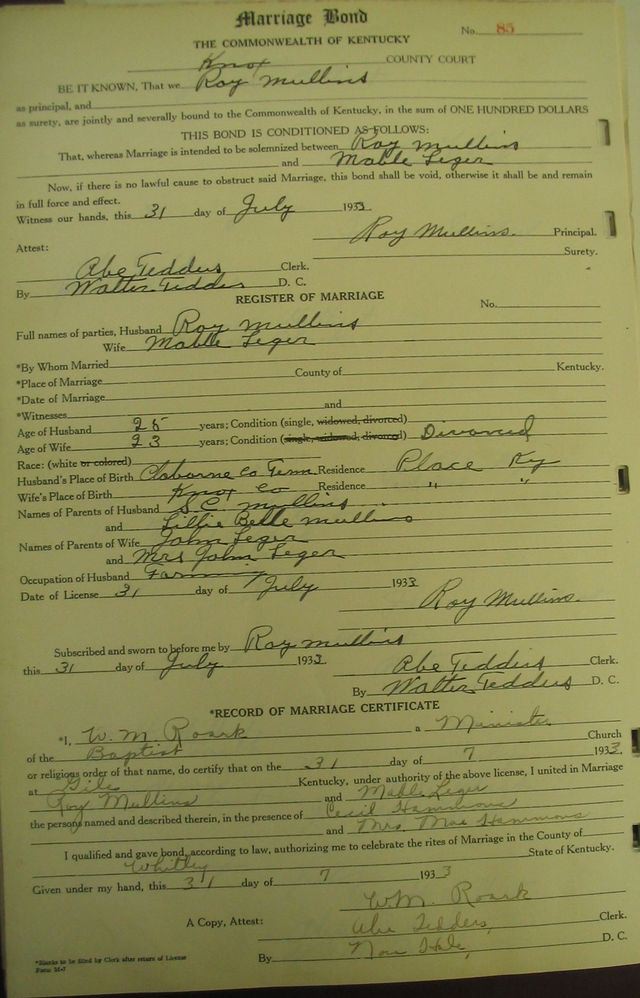 Marriage Bond
No. 85
THE COMMONWEALTH OF KENTUCKY
Knox COUNTY COURT
BE IT KNOWN, That we Roy Mullins
as principal, and
as surety, are jointly and severally bound to the Commonwealth of Kentucky, in the sum of ONE HUNDRED DOLLARS
THIS BOND IS CONDITIONED AS FOLLOWS:
That, whereas Marriage is intended to be solemnized between Roy Mullins
and Mable Leger
Now, if there is no lawful cause to obstruct said Marriage, this bond shall be void, otherwise it shall be and remain
in full force and effect.
Witness our hands, this 31 day of July 1933
Roy Mullins. Principal.
Attest: Surety.
Abe Tedders Clerk.
By Walter Tedders D. C.
REGISTER OF MARRIAGE
No.
Full names of parties, Husband Roy Mullins
Wife Mable Leger
*By Whom Married
*Place of Marriage County of Kentucky.
*Date of Marriage
*Witnesses and
Age of Husband 25 years; Condition (single, widowed, divorced)
Age of Wife 23 years; Condition (single, widowed, divorced) Divorced
Race: (white or colored)
Husband's Place of Birth Claborne Co Tenn Residence Place Ky
Wife's Place of Birth Knox Co Residence " "
Names of Parents of Husband S.C. Mullins
and Lillie Belle Mullins
Names of Parents of Wife John Leger
and Mrs John Leger
Occupation of Husband Farming
Date of License 31 day of July 1933
Roy Mullins.
Subscribed and sworn to before me by Roy Mullins
this 31 day of July 1933
Abe Tedders Clerk.
By Walter Tedders D. C.
*RECORD OF MARRIAGE CERTIFICATE
*I, W. M. Roark a Minister
of the Baptist Church
or religious order of that name, do certify that on the 31 day of 7 1933.
at Giles Kentucky, under authority of the above license, I united in Marriage
Roy Mullins and Mable Leger
the persons named and described therein, in the presence of Cecil Hammons
and Mrs. Mae Hammons
I qualified and gave bond, according to law, authorizing me to celebrate the rites of Marriage in the County of
Whitley State of Kentucky.
Given under my hand, this 31 day of 7 1933
W.M. Roark
A Copy, Attest: Abe Tedders, Clerk.
By Hale, D. C.
*Blanks to be filled by Clerk after return of License
Form M-7